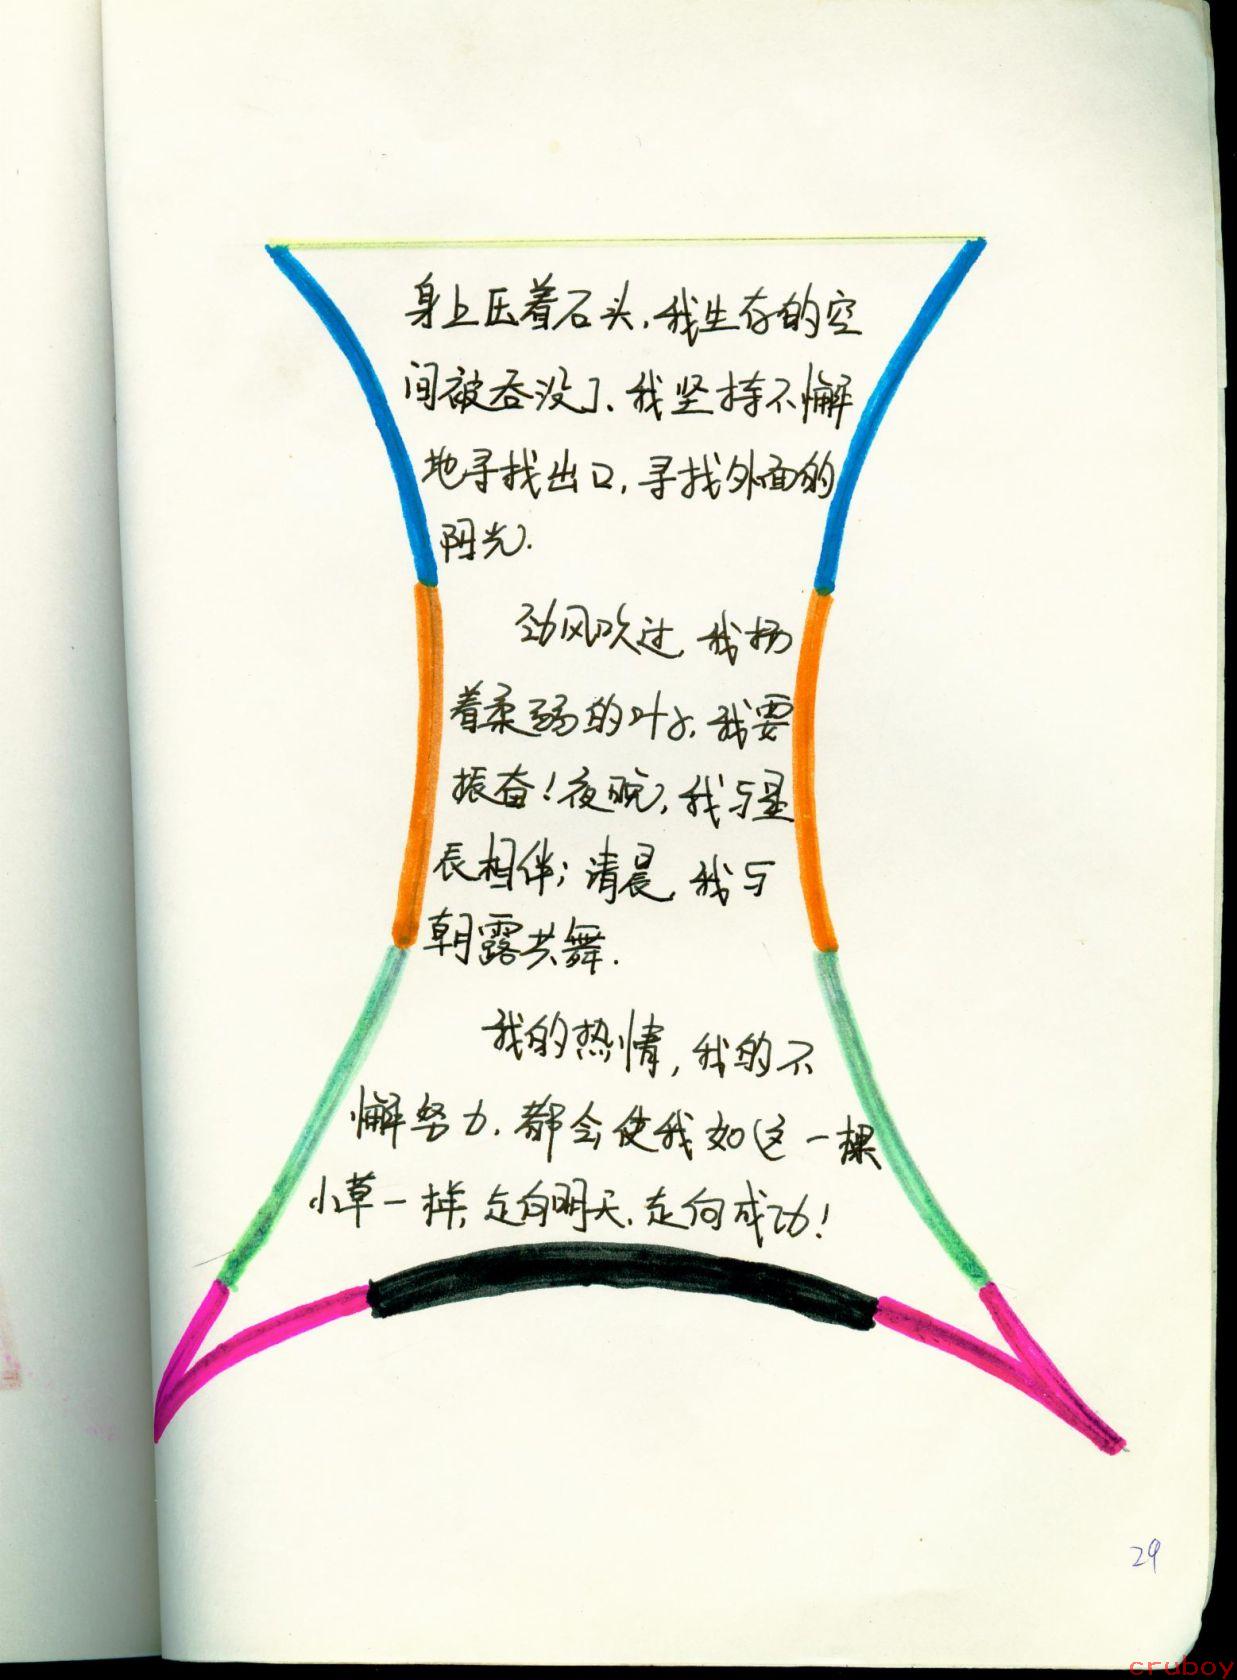 身上压着石头,我生存的空
间被吞没了、我坚持不懈
地寻找出口,寻找外面的
阳光.
劲风吹过,我扬
着柔弱的叶子,我要
振奋!夜晚,我与星
辰相伴;清晨,我与
朝露共舞.
我的热情,我的不
懈努力,都会使我如这一棵
小草一样,走向明天,走向成功!
29
cruboy